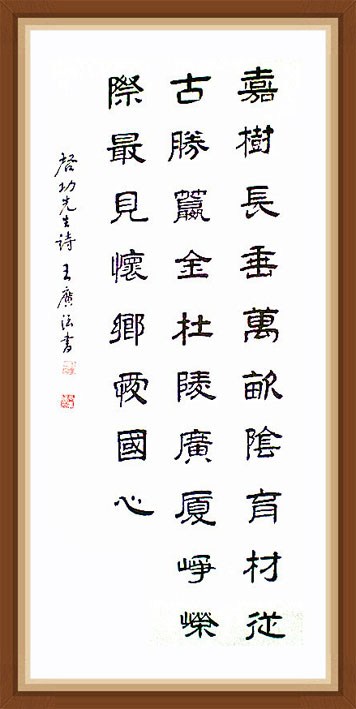 嘉樹長垂萬畝陰育材從
古勝籯金杜陵廣厦崢嶸
際最見懷鄉愛國心
啓功先生詩 王廣法書